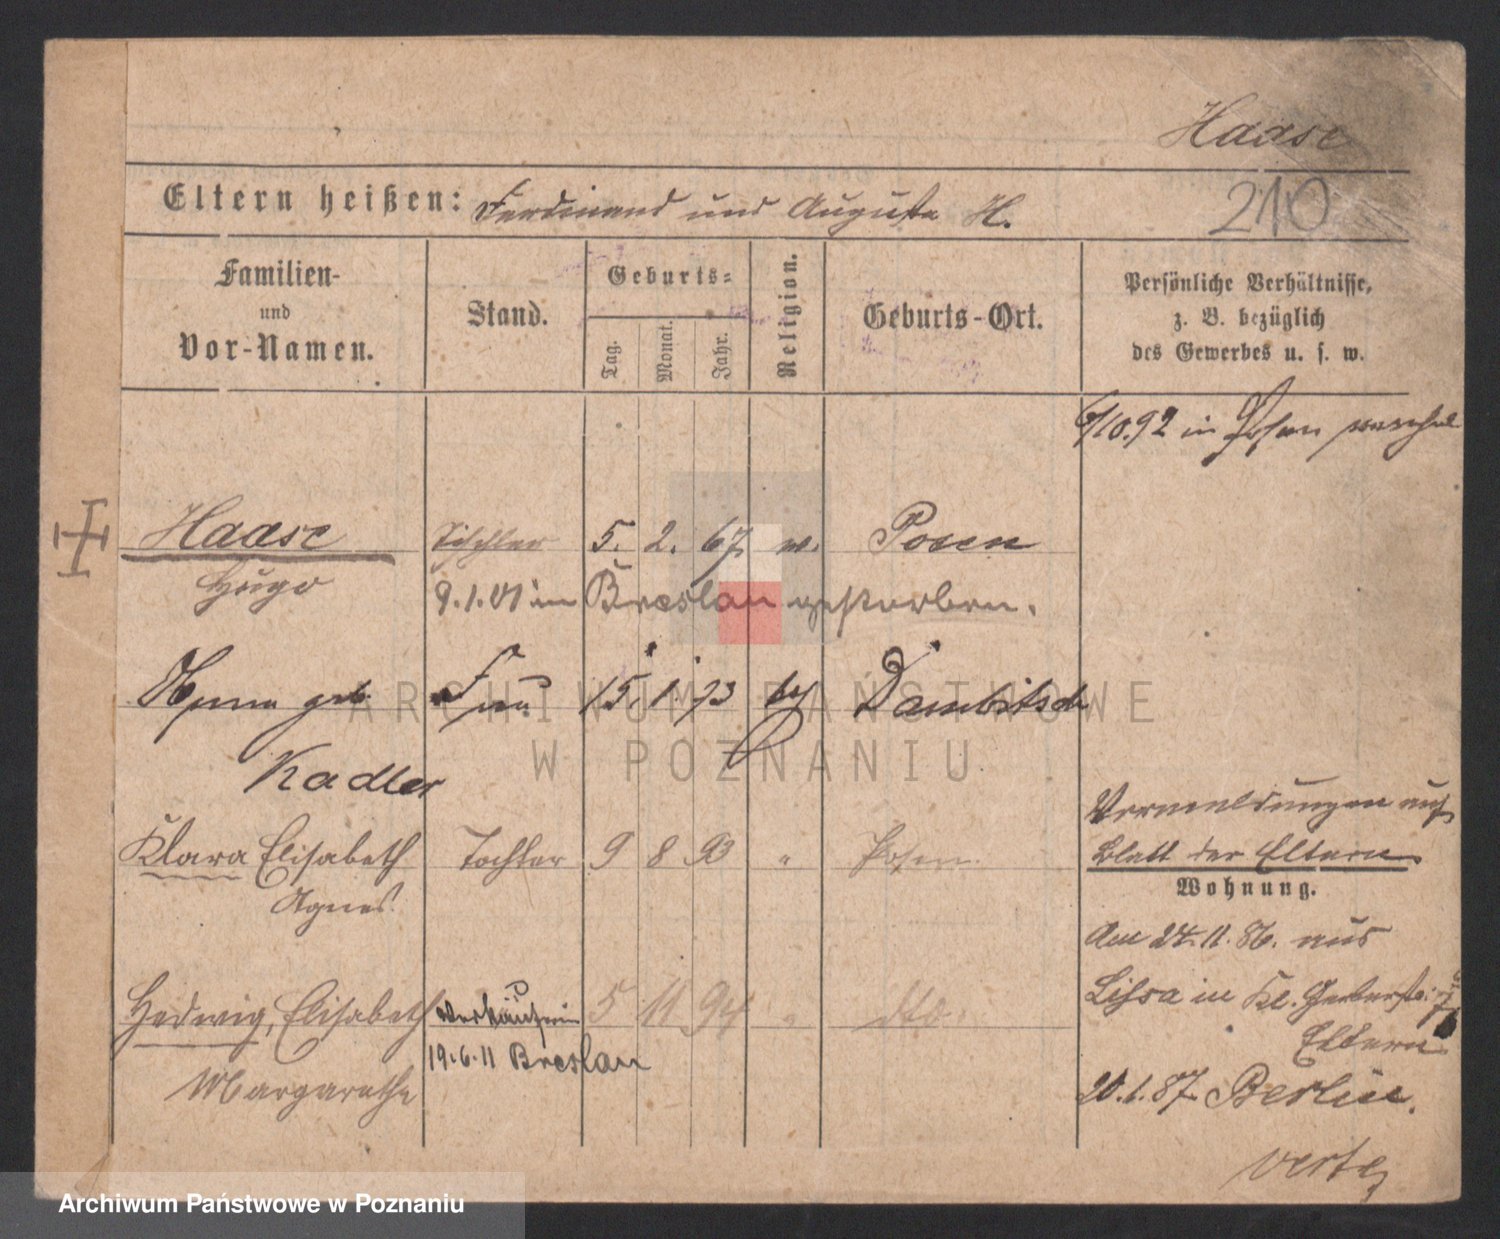 Haase
Eltern heißen: Ferdinand und Auguste H.
210
Familien-
und
Vor-Namen.
Stand.
Geburts-
Tag.
Monat.
Jahr.
Religion.
Geburts-Ort.
Persönliche Verhältnisse,
z. B. bezüglich
des Gewerbes u. s. w.
6/10.92 in Posen
Haase Tischler 5. 2. 67. Posen
Hugo
9.1.01 in Breslau gestorben.
geb. Frau 15. 1. 73 Dambitsch
Kadler
Klara Elisabeth Tochter 9 8 93 " Posen
Agnes
Vermeldungen auf
Blatt der Eltern
Wohnung.
Am 24.11.86. aus
Lissa in Kl. Gerberstr.
Eltern
Hedwig, Elisabeth Verkäuferin 5 11 94 " dto.
19.6.11 Breslau
Margarethe
20.1.87. Berlin.
verte
ARCHIWUM PAŃSTWOWE
W POZNANIU
Archiwum Państwowe w Poznaniu